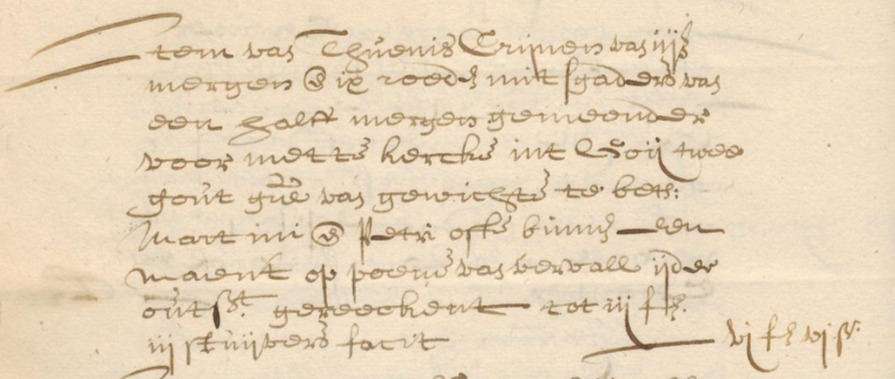 Item van Thuenis Crijnen van iij½
mergen en ix roeden mitsgaders van
een halff mergen gemeender
voor mette kercke int Goij twee
gout gul. van gewichte te bet:
Martini en Petri ofte binnen een
maent op poene van verval ijder
outst. gereeckent tot iij £.
iij stuijvers facit vj £ vj st.